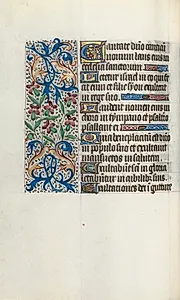 Cantate dño canticū
novum laus eius in
ecclesia sanctorum
Letetur israel in eo qui fe
cit eum et filie syon exultent
in rege suo
Laudent nomen eius in
choro in tympano et psalterio
psallant ei
Quia beneplacitū est dño
in populo suo et exultavit
mansuetos in salutem
Exultabunt sancti in gloria
letabuntur in cubilibus suis
Exultationes dei in gutture